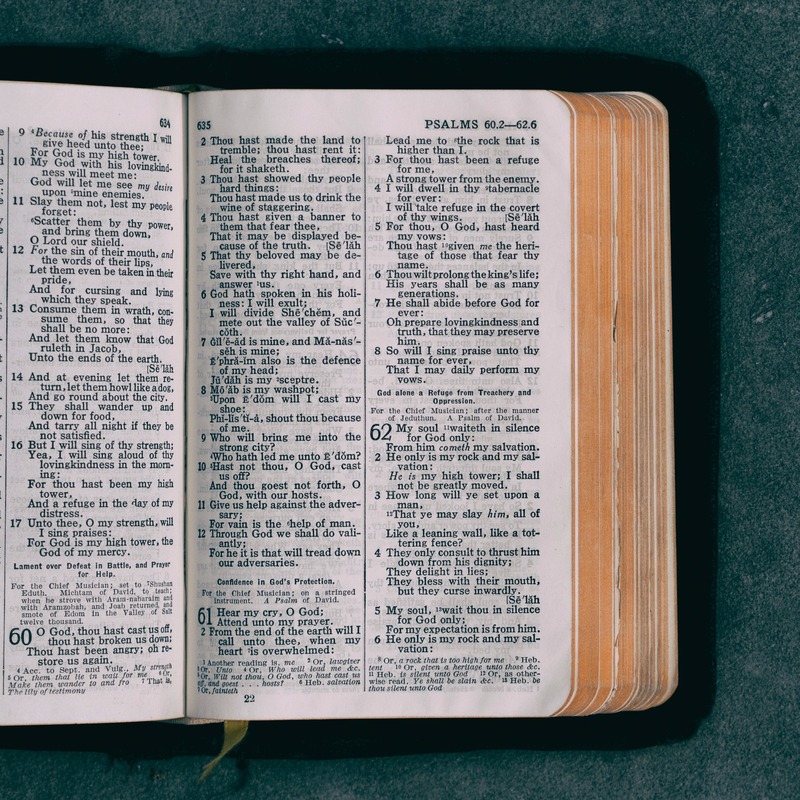 634
9 ⁴Because of his strength I will
give heed unto thee;
For God is my high tower.
10 My God with his lovingkind-
ness will meet me:
God will let me see my desire
upon ⁵mine enemies.
11 Slay them not, lest my people
forget:
⁶Scatter them by thy power,
and bring them down,
O Lord our shield.
12 For the sin of their mouth, and
the words of their lips,
Let them even be taken in their
pride,
And for cursing and lying
which they speak.
13 Consume them in wrath, con-
sume them, so that they
shall be no more:
And let them know that God
ruleth in Jacob,
Unto the ends of the earth.
[Sē´läh
14 And at evening let them re-
turn, let them howl like a dog,
And go round about the city.
15 They shall wander up and
down for food,
And tarry all night if they be
not satisfied.
16 But I will sing of thy strength;
Yea, I will sing aloud of thy
lovingkindness in the morn-
ing:
For thou hast been my high
tower,
And a refuge in the day of my
distress.
17 Unto thee, O my strength, will
I sing praises:
For God is my high tower, the
God of my mercy.
Lament over Defeat in Battle, and Prayer
for Help.
For the Chief Musician; set to ⁷Shushan
Eduth. Michtam of David, to teach;
when he strove with Aram-naharaim and
with Aramzobah, and Joab returned, and
smote of Edom in the Valley of Salt
twelve thousand.
60 O God, thou hast cast us off,
thou hast broken us down;
Thou hast been angry; oh re-
store us again.
4 Acc. to Sept. and Vulg., My strength
5 Or, them that lie in wait for me 6 Or,
Make them wander to and fro 7 That is,
The lily of testimony
635
PSALMS 60.2—62.6
2 Thou hast made the land to
tremble; thou hast rent it:
Heal the breaches thereof;
for it shaketh.
3 Thou hast showed thy people
hard things:
Thou hast made us to drink the
wine of staggering.
4 Thou hast given a banner to
them that fear thee,
That it may be displayed be-
cause of the truth. [Sē´läh
5 That thy beloved may be de-
livered,
Save with thy right hand, and
answer ¹us.
6 God hath spoken in his holi-
ness: I will exult;
I will divide Shē´chĕm, and
mete out the valley of Sŭc´-
cŏth.
7 Gĭl´ĕ-ăd is mine, and Mă-năs´-
sĕh is mine;
Ē´phră-ĭm also is the defence
of my head;
Jū´dăh is my ²sceptre.
8 Mō´ăb is my washpot;
³Upon Ē´dŏm will I cast my
shoe:
Phĭ-lĭs´tĭ-á, shout thou because
of me.
9 Who will bring me into the
strong city?
⁴Who hath led me unto Ē´dŏm?
10 ⁵Hast not thou, O God, cast
us off?
And thou goest not forth, O
God, with our hosts.
11 Give us help against the adver-
sary;
For vain is the ⁶help of man.
12 Through God we shall do vali-
antly;
For he it is that will tread down
our adversaries.
Confidence in God's Protection.
For the Chief Musician; on a stringed
instrument. A Psalm of David.
61 Hear my cry, O God;
Attend unto my prayer.
2 From the end of the earth will I
call unto thee, when my
heart ⁷is overwhelmed:
1 Another reading is, me 2 Or, lawgiver
3 Or, Unto 4 Or, Who will lead me &c.
5 Or, Wilt not thou, O God, who hast cast us
off, and goest . . . hosts? 6 Heb. salvation
7 Or, fainteth
22
Lead me to ⁸the rock that is
higher than I.
3 For thou hast been a refuge
for me,
A strong tower from the enemy.
4 I will dwell in thy ⁹tabernacle
for ever:
I will take refuge in the covert
of thy wings. [Sē´läh
5 For thou, O God, hast heard
my vows:
Thou hast ¹⁰given me the heri-
tage of those that fear thy
name.
6 Thou wilt prolong the king's life;
His years shall be as many
generations.
7 He shall abide before God for
ever:
Oh prepare lovingkindness and
truth, that they may preserve
him.
8 So will I sing praise unto thy
name for ever,
That I may daily perform my
vows.
God alone a Refuge from Treachery and
Oppression.
For the Chief Musician; after the manner
of Jeduthun. A Psalm of David.
62 My soul ¹¹waiteth in silence
for God only:
From him cometh my salvation.
2 He only is my rock and my sal-
vation:
He is my high tower; I shall
not be greatly moved.
3 How long will ye set upon a
man,
¹²That ye may slay him, all of
you,
Like a leaning wall, like a tot-
tering fence?
4 They only consult to thrust him
down from his dignity;
They delight in lies;
They bless with their mouth,
but they curse inwardly.
[Sē´läh
5 My soul, ¹³wait thou in silence
for God only;
For my expectation is from him.
6 He only is my rock and my sal-
vation:
8 Or, a rock that is too high for me 9 Heb.
tent 10 Or, given a heritage unto those &c.
11 Heb. is silent unto God 12 Or, as other-
wise read, Ye shall be slain &c. 13 Heb. be
thou silent unto God